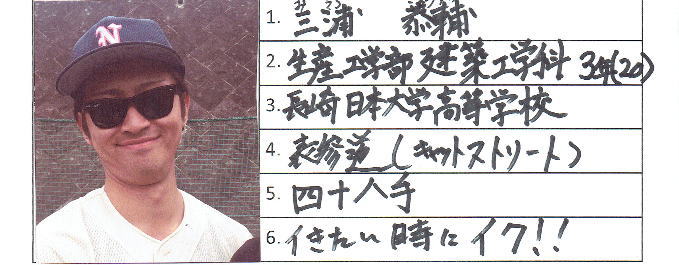 N
1. 三浦 恭輔
2. 生産工学部 建築工学科 3年(20)
3. 長崎日本大学高等学校
4. 表参道(キャットストリート)
5. 四十八手
6. イきたい時にイク!!